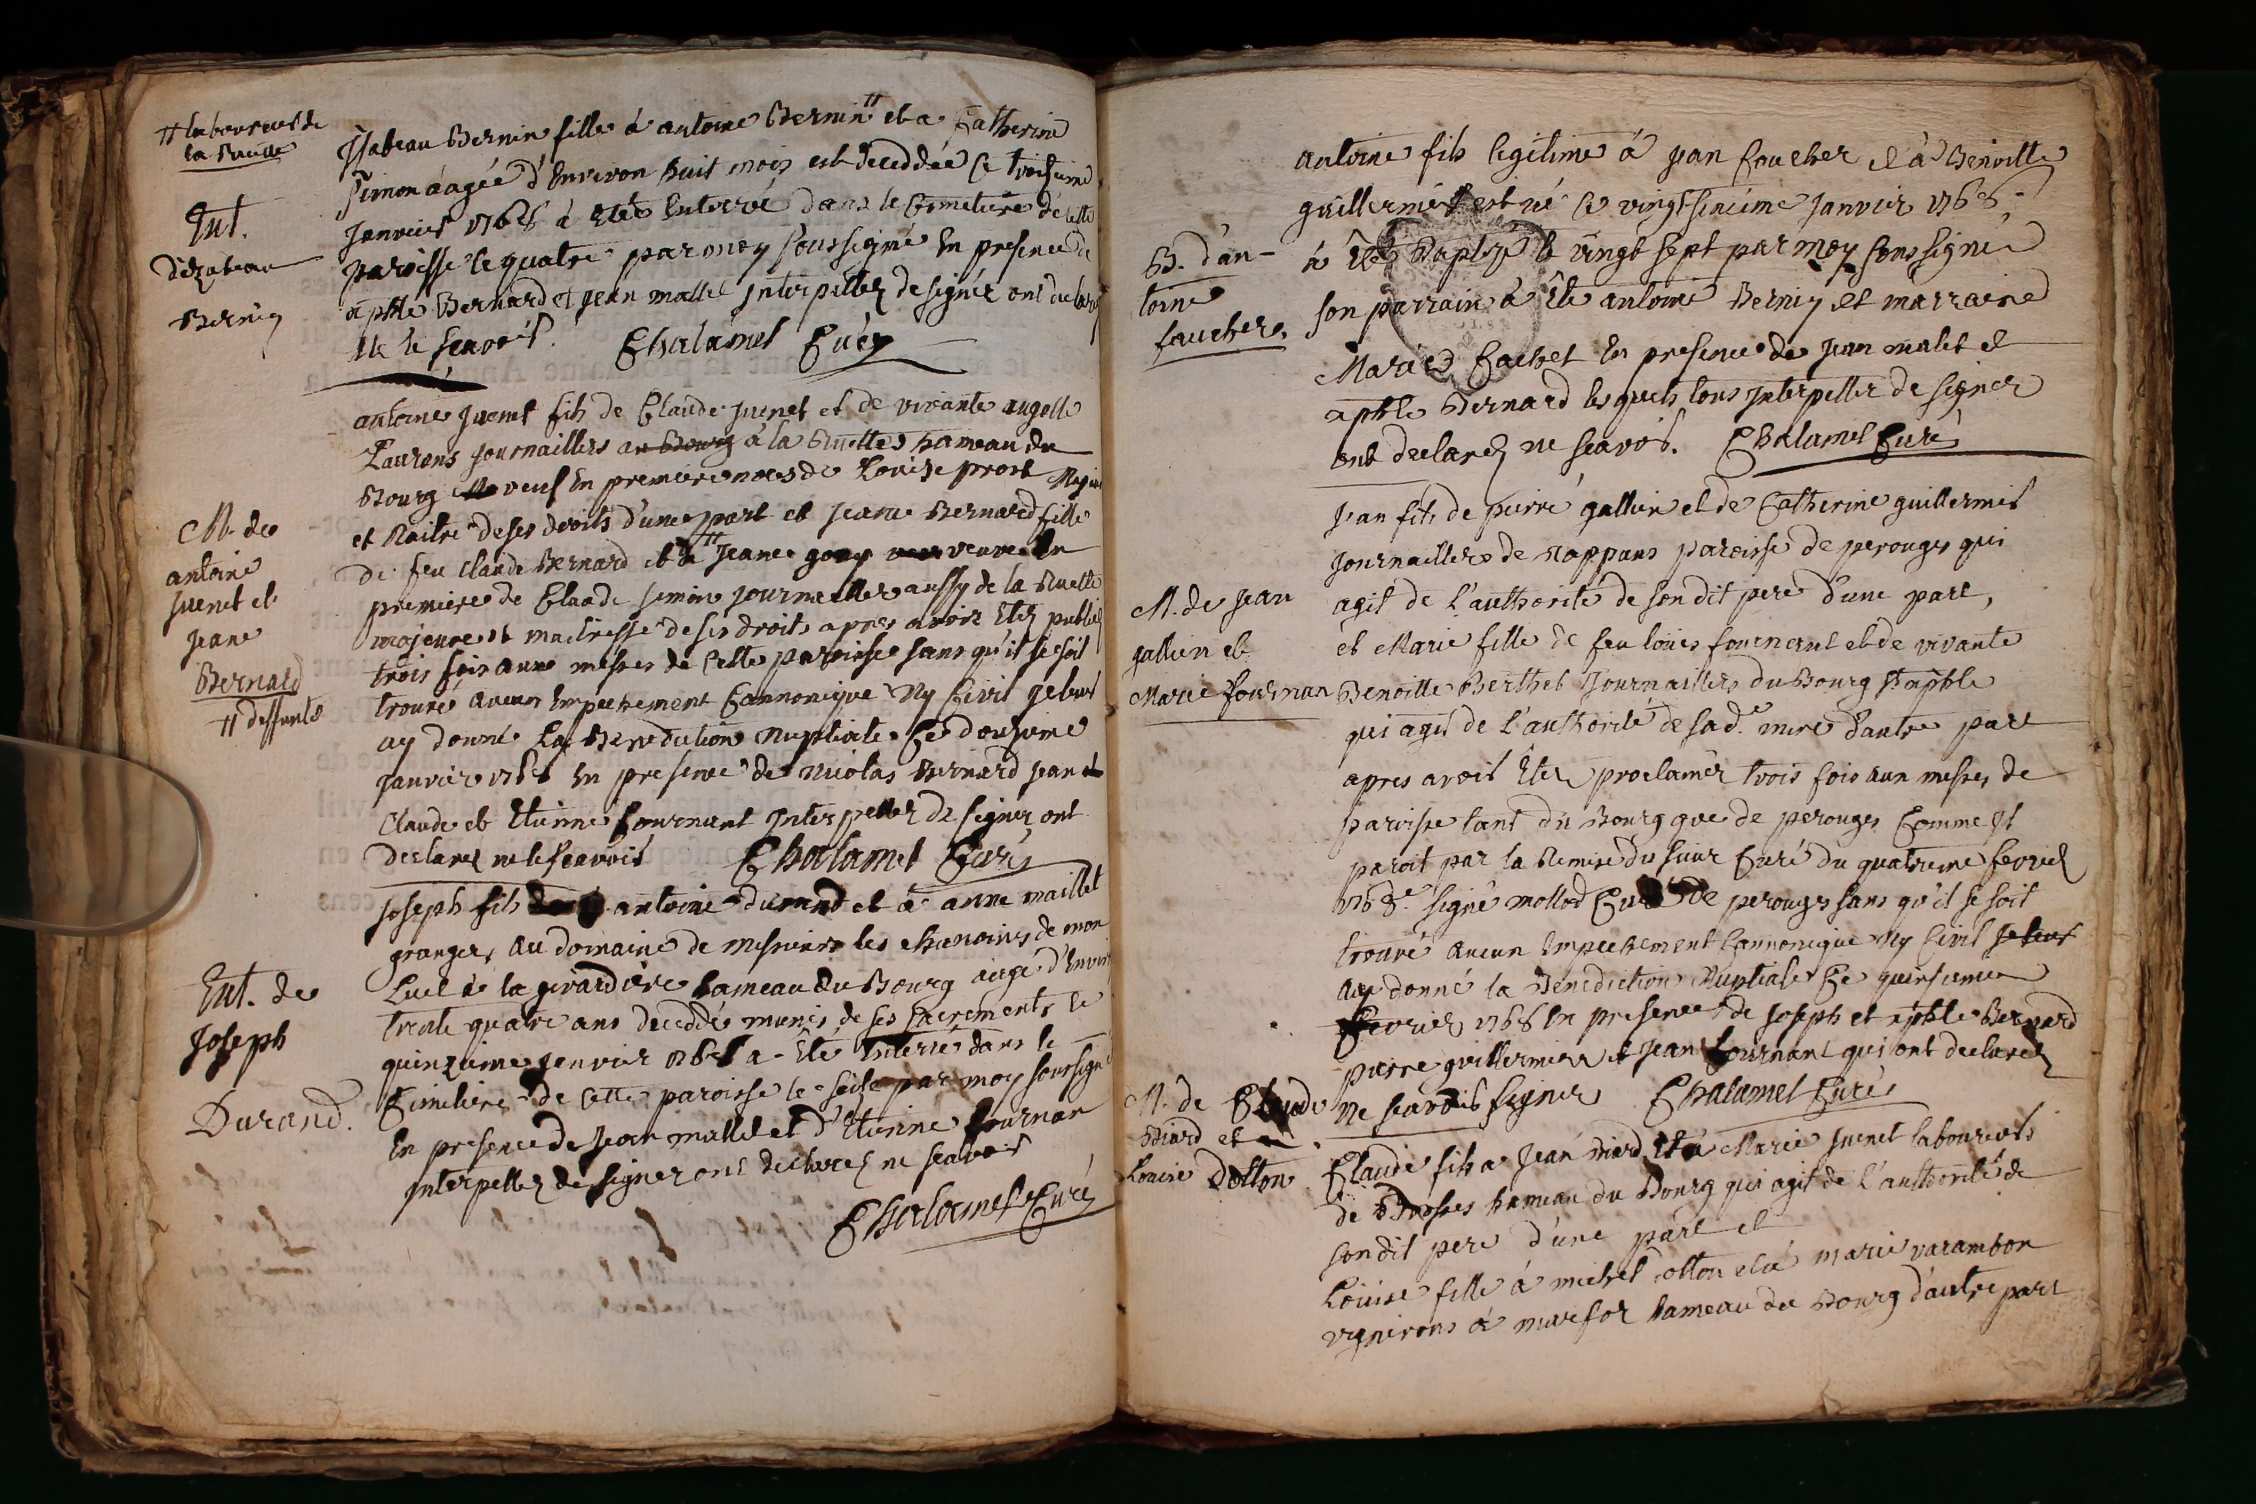 # laboureurs de
la Ruette
Ent.
d'izabeau
Bernin
Isabeau Bernin fille à antoine Bernin # et a Catherine
Simon áagée d'Environ huit mois est deceddée Ce troisieme
Janvier 1768 à Eté Enterré dans le Cimetiere de cette
paroisse le quatre par moy soussigné En presence de
aphle Bernard et Jean mallet Interpellez de signér ont
ne le scavoir. Chalamel Curé
M. de
antoine
Juenet et
Jeane
Bernard
# deffunte
antoine Juenet fils de Claude Juenet et de vivante
Laurens journailliers au Bourg à la Ruette hameau du
Bourg veuf En premiere noces de Louise prost
et Maitre de ses droits d'une part et Jeane Bernard fille
de feu Claude Bernard et de # Jeane veuve En
premiere de Claude simon journallier aussy de la Ruette
majeure et maitresse de ses droits apres avoir Etéz publiéz
trois fois aune messes de Cette paroisse sans qu'il se soit
trouvé aucun Empechement Cannonique Ny Civil Je leur
ay donné La Benediction Nuptiale Ce douzieme
Janvier 1768 En présence de Nicolas Bernard jean
Claude et Etienne fournant Interpellez de signer ont
declarez ne le scavoir Chalamel Curé
Ent. de
Joseph
Durand.
Joseph fils antoine durand et à anne maillet
grangers au domaine de messieurs les chanoines de mon
Luel à la girardiere hameau du Bourg áagé d'Environ
trente quatre ans decedé munis de ses sacrements le
quinzieme janvier 1768 a Eté Enterré dans le
Cimetiere de Cette paroisse le seize par moy soussigné
En presence de Jean mallet et d'Etienne fournan
Interpellez de signer ont declarez ne scavoir
Chalamel Curé
B. d'an-
toine
foucher.
antoine fils legitime á jean foucher et à Benoitte
guillermet est né Ce vingtsixieme Janvier 1768
à Eté Baptizé le vingt sept par moy soussigné
son parrain à Eté antoine Bernin et marraine
Marie Cachet En presence de jean malet et
aphle Bernard lesquels tous Interpellez de signer
ont declarez ne scavoir. Chalamel Curé
M. de jean
gallien et
Marie fournan
Jean fils de pierre gallien et de Catherine guillermet
journailliers de rappans paroisse de perouges qui
agit de l'authorité de son dit pere d'une part,
et Marie fille de feu louis fournant et de vivante
Benoitte Berthet journailliers du Bourg St aphle
qui agit de l'authorité de sa de. mere d'autre part
apres avoir Etez proclamér trois fois aux messes de
paroisse tant du Bourg que de perouges Comme Il
paroit par la Remise du sieur Curé du quatrieme fevrier
1768. signé mollod Curé de perouges sans qu'il se soit
trouvé aucun Empechement Cannonique Ny Civil Je leur
ay donné la Benediction Nuptiale Ce quinzieme
fevrier 1768 En presence de Joseph et aphle Bernard
pierre guillermier et Jean fournant qui ont declarez
Ne scavoir signer Chalamel Curé
M. de Claude
Biard et
Louise Dolton
Claude fils a Jean Biard Et a Marie Juenet laboureurs
de Brosses hameau du Bourg qui agit de l'authorité de
son dit pere d'une part et
Louise fille á michel dolton et á marie varambon
vignerons á marfoz hameau du Bourg d'autre part